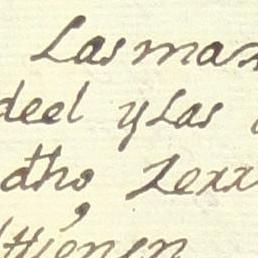 Las mar
deel y Las
dho, Zerr
ttienen